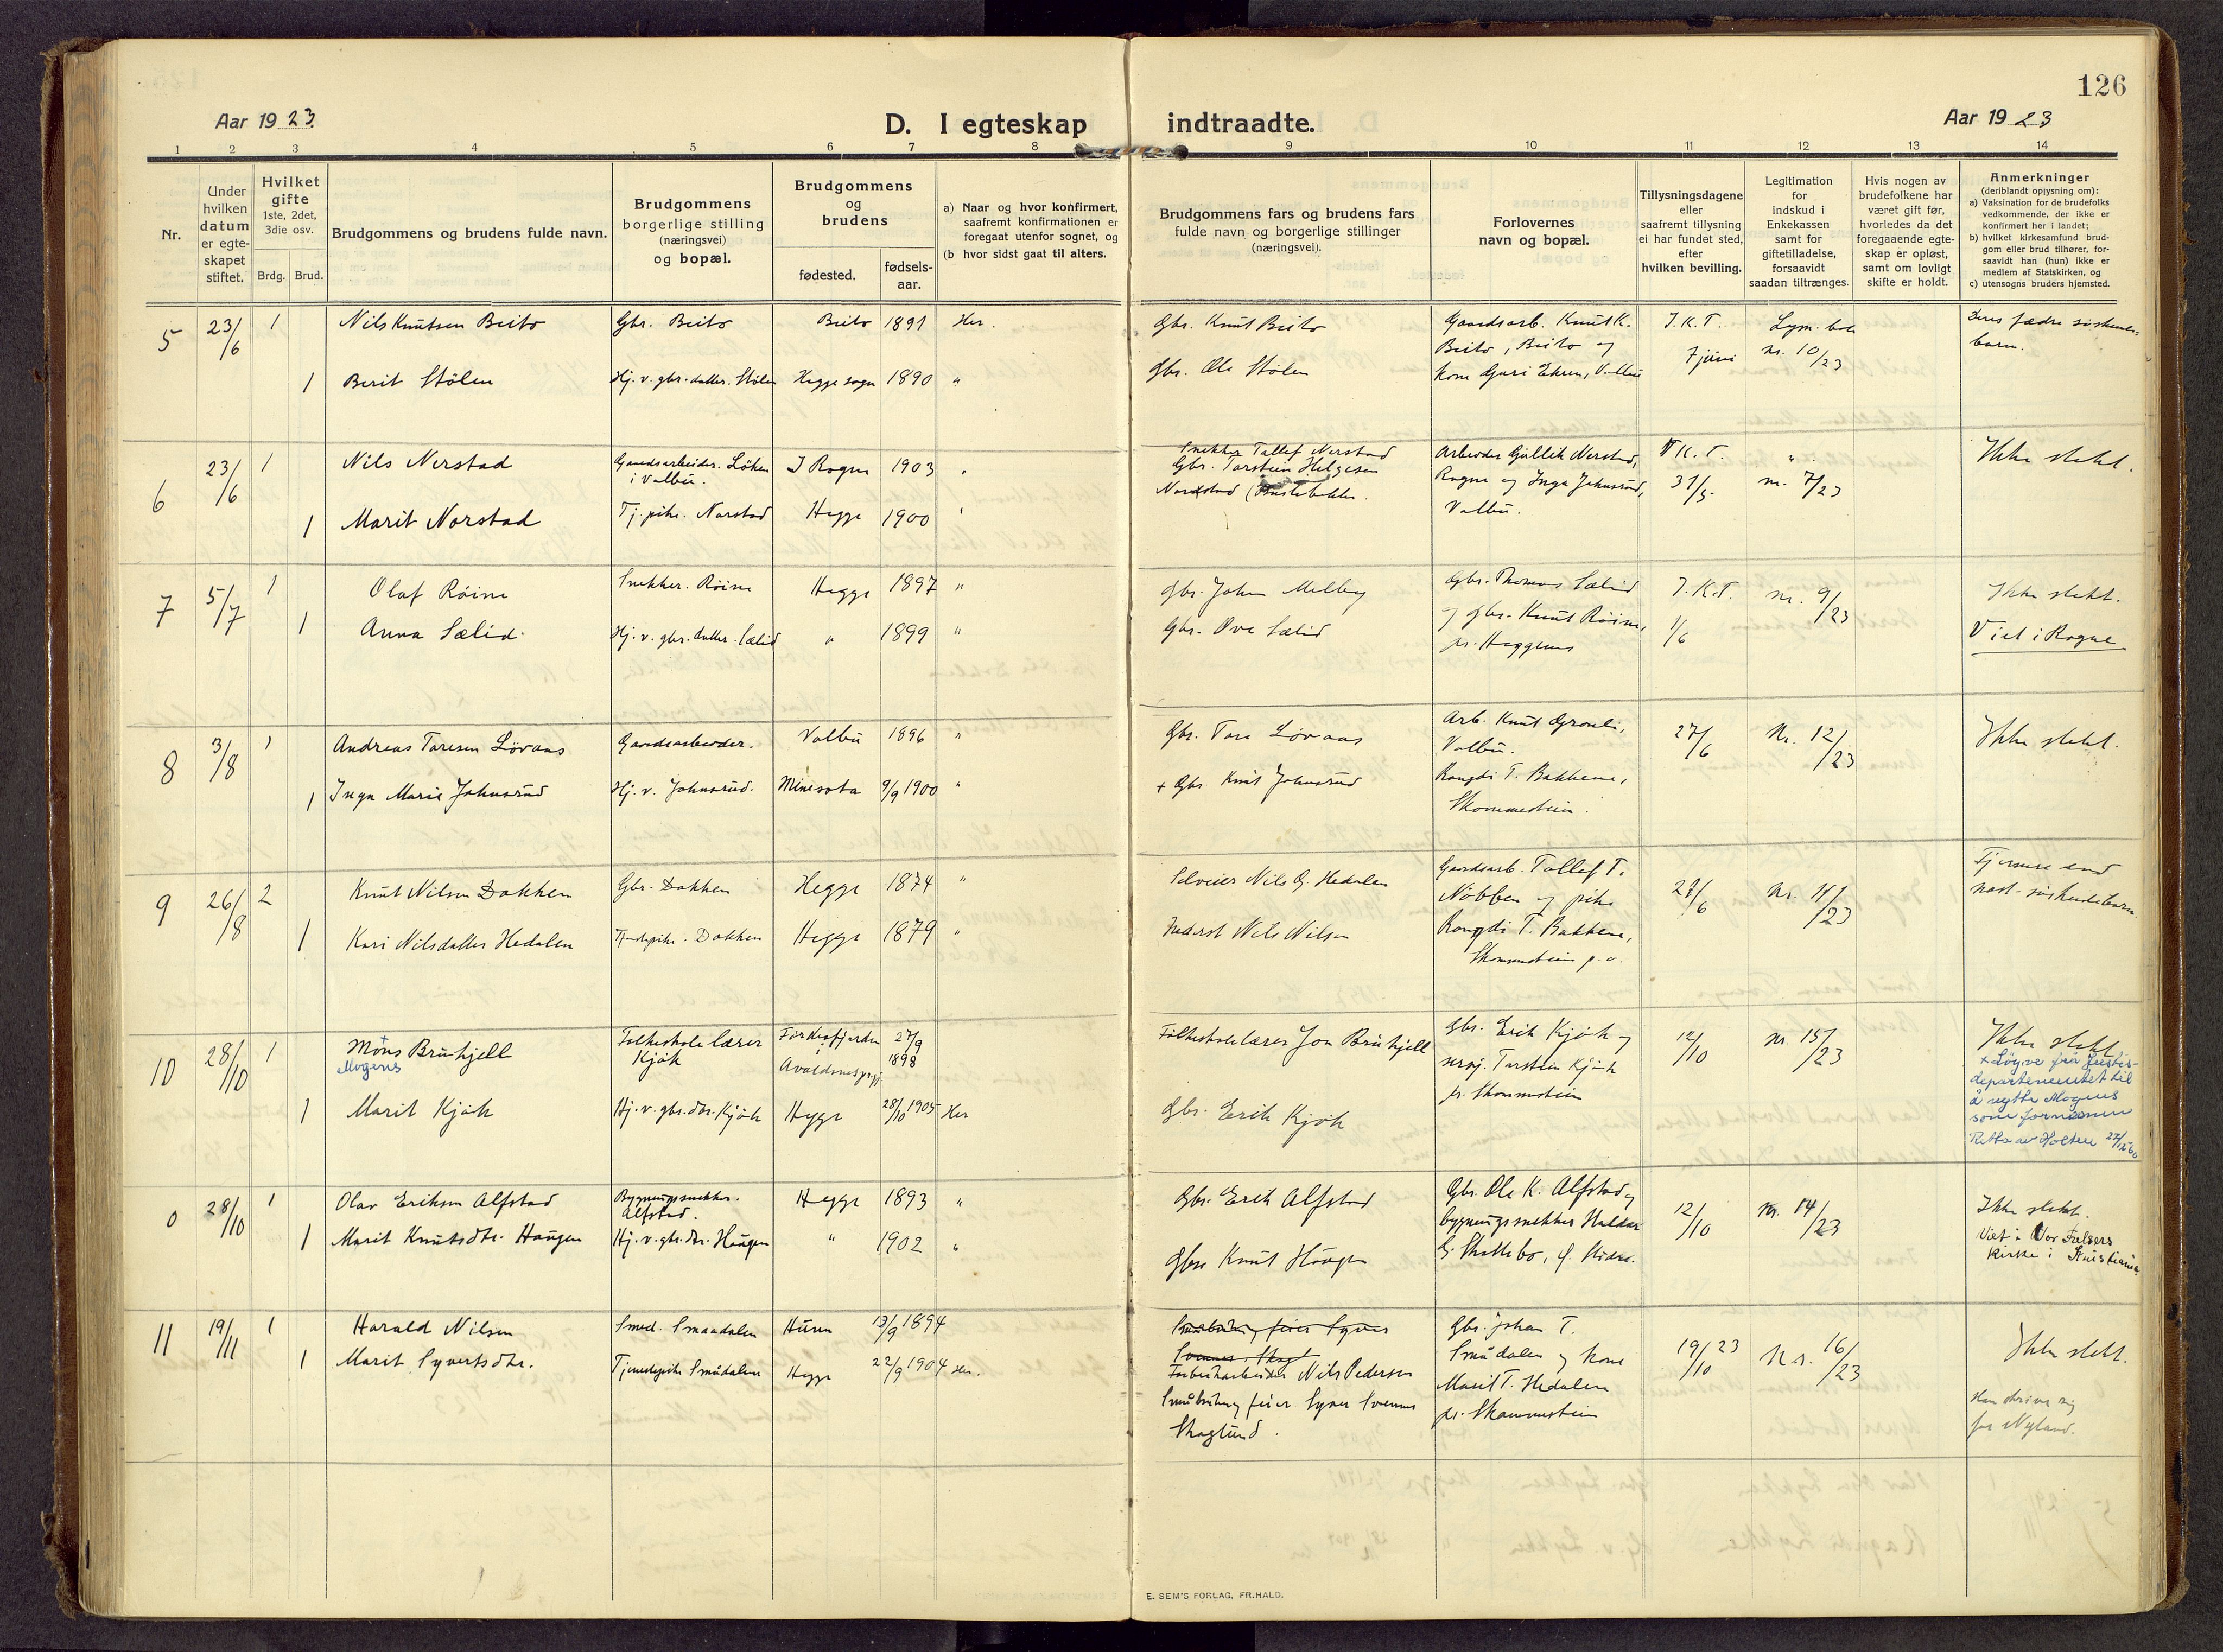 126
Aar 1923.
D. I egteskap indtraadte.
Aar 1923
1 2 3 4 5 6 7 8 9 10 11 12 13 14
Nr.
Under
hvilken
datum
er egte-
skapet
stiftet.
Hvilket
gifte
1ste, 2det,
3die osv.
Brdg. Brud.
Brudgommens og brudens fulde navn.
Brudgommens
borgerlige stilling
(næringsvei)
og bopæl.
Brudgommens
og
brudens
fødested.
fødsels-
aar.
a) Naar og hvor konfirmert,
saafremt konfirmationen er
foregaat utenfor sognet, og
(b hvor sidst gaat til alters.
Brudgommens fars og brudens fars
fulde navn og borgerlige stillinger
(næringsvei).
Forlovernes
navn og bopæl.
Tillysningsdagene
eller
saafremt tillysning
ei har fundet sted,
efter
hvilken bevilling.
Legitimation
for
indskud i
Enkekassen
samt for
giftetilladelse,
forsaavidt
saadan tiltrænges.
Hvis nogen av
brudefolkene har
været gift før,
hvorledes da det
foregaaende egte-
skap er opløst,
samt om lovligt
skifte er holdt.
Anmerkninger
(deriblandt opjysning om):
a) Vaksination for de brudefolks
vedkommende, der ikke er
konfirmert her i landet;
b) hvilket kirkesamfund brud-
gom eller brud tilhører, for-
saavidt han (hun) ikke er
medlem af Statskirken, og
c) utensogns bruders hjemsted.
5 23/6 1 Nils Knutsen Beito Gbr. Beito Beito 1891 Her. Gbr. Knut Beito
1 Berit Stölen Hj. v. gbr. datter. Stölen Hegge sogn 1890 " Gbr. Ole Stölen
Gaardsarb. Knut K.
Beito, Beito og
kone Guri Ekren, Volbu
J. K. T.
7 juni
Lysn. bok
nr. 10/23
Deres fædre søskende-
barn.
6 23/6 1 Nils Nerstad Gaardsarbeider. Löken
i Volbu. I Rogne 1903 "
1 Marit Norstad Tj. pike. Norstad Hegge 1900 "
Snekker Tollef Nerstad
Gbr. Torstein Helgesen
Arbeider Gullik Nerstad,
Rogne og Inga Johnsrud,
Volbu.
K. T.
31/5.
"
nr. 7/23
Ikke slekt.
7 5/7 1 Olaf Röine Snekker. Röine Hegge 1897 " Gbr. John Melby
1 Anna Sælid. Hj. v. gbr. datter. Sælid " 1899 " Gbr. Ove Sælid
Gbr. Thomas Sælid
og gbr. Knut Röine,
pr. Heggenes
J. K. T.
1/6
nr. 9/23
Ikke slekt.
Viet i Rogne
8 3/8 1 Andreas Toresen Lövaas Gaardsarbeider. Volbu 1896 " Gbr. Tore Lövaas
1 Inga Marie Johnsrud Hj. v. Johnsrud. Minesota 9/9 1900 " + Gbr. Knut Johnsrud
Arb. Knut Gronli,
Volbu.
Rangdi T. Bakkene,
Skammestein.
27/6
Nr. 12/23
Ikke slekt.
9 26/8 2 Knut Nilsen Dokken Gbr. Dokken Hegge 1874 " Selveier Nils G. Hedalen
1 Kari Nilsdatter Hedalen Tjenestepike. Dokken Hegge 1879 " Inderst Nils Nilsen
Gaardsarb. Tollef T.
Nöbben og pike
Rangdi T. Bakkene,
Skammestein p. o.
27/6
Nr. 11/23
Fjernere end
næst-søskendebarn.
10 28/10 1 Mons Bruhjell
Mogens
Folkeskolelærer
Kjök
27/9
1898
Folkeskolelærer Jon Bruhjell
1 Marit Kjök Hj. v. gbr. dtr. Kjök Hegge 28/10 1905 Her Gbr. Erik Kjök
Gbr. Erik Kjök og
sersj. Torstein Kjök
pr. Skammestein
12/10
nr 15/23
Ikke slekt
x Löyve frå justis-
departementet til
å nytte Mogens
som fornamn
0 28/10 1 Olav Eriksen Alfstad Bygningssnekker.
Alfstad. Hegge 1893 " Gbr. Erik Alfstad
1 Marit Knutsdtr. Haugen Hj. v. gbr. dtr. Haugen " 1902 " Gbr. Knut Haugen
Gbr. Ole K. Alfstad og
bygningssnekker Haldor
12/10
Nr. 14/23
Ikke slekt.
Viet i Vor Frelsers
kirke i Kristiania
11 19/11 1 Harald Nilsen Smed. Smaadalen Hurum 13/9 1894
1 Marit Syvertsdtr. Tjenestepike Smådalen Hegge 22/9 1904 Her.
Småbruker og feier Syver
Fabrikarbeider Nils Pedersen
Småbruker og feier Syver Svennes
Skoglund.
Gbr. Johan T.
Smådalen og kone
Marit T. Hedalen
pr. Skammestein
19/10 23
Nr. 16/23
Ikke slekt.
Han skriver sig
for Nyland.
E. SEM'S FORLAG, FR.HALD.